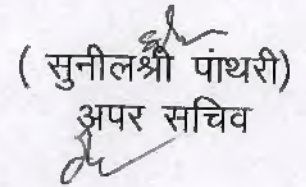 ( सुनीलश्री पांथरी)
अपर सचिव